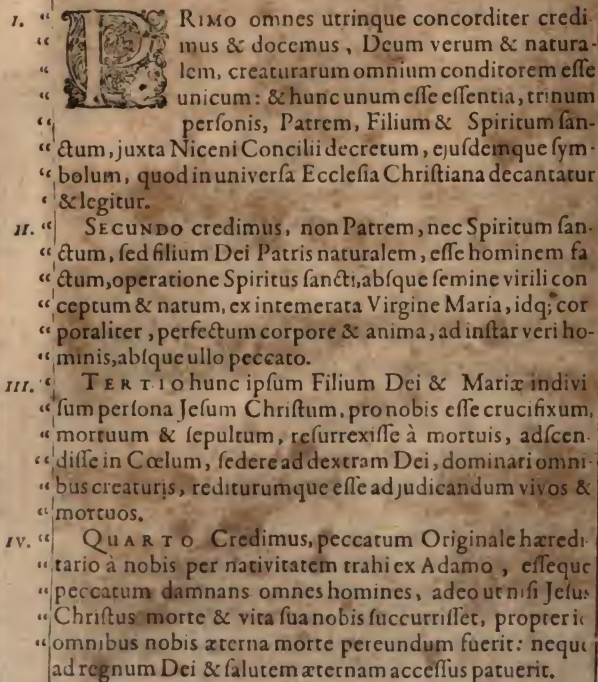 I. “ PRIMO omnes utrinque concorditer credi-
“ mus & docemus, Deum verum & natura-
“ lem, creaturarum omnium conditorem eſſe
“ unicum: & hunc unum eſſe eſſentia, trinum
“ perſonis, Patrem, Filium & Spiritum ſan-
“ ctum, juxta Niceni Concilii decretum, ejuſdemque ſym-
“ bolum, quod in univerſa Eccleſia Chriſtiana decantatur
‘ & legitur.
II. “ SECUNDO credimus, non Patrem, nec Spiritum ſan-
“ ctum, ſed filium Dei Patris naturalem, eſſe hominem fa
“ ctum, operatione Spiritus ſancti, abſque ſemine virili con
“ ceptum & natum, ex intemerata Virgine Maria, idq; cor
“ poraliter, perfectum corpore & anima, ad inſtar veri ho-
“ minis, abſque ullo peccato.
III. “ TERTIO hunc ipſum Filium Dei & Mariæ indivi
“ ſum perſona Jeſum Chriſtum, pro nobis eſſe crucifixum,
“ mortuum & ſepultum, reſurrexiſſe à mortuis, adſcen-
“ diſſe in Cœlum, ſedere ad dextram Dei, dominari omni-
“ bus creaturis, rediturumque eſſe ad judicandum vivos &
“ mortuos.
IV. “ QUARTO Credimus, peccatum Originale hæredi-
“ tario à nobis per nativitatem trahi ex Adamo, eſſeque
“ peccatum damnans omnes homines, adeo ut niſi Jeſus
“ Chriſtus morte & vita ſua nobis ſuccurriſſet, propter id
“ omnibus nobis æterna morte pereundum fuerit: neque
ad regnum Dei & ſalutem æternam acceſſus patuerit.